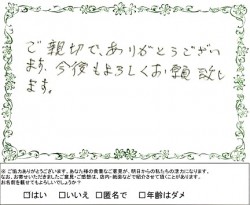 ご親切で、ありがとうござい
ます。今後もよろしくお願致し
ます。
※ご協力ありがとうございます。あなた様の貴重なご意見が、明日からの私たちの活力になります。
なお、お寄せいただきましたご意見・ご感想は、店内・紙面などで紹介させて頂くことがあります。
お名前を載せてもよろしいでしょうか?
□はい □いいえ □匿名で □年齢はダメ